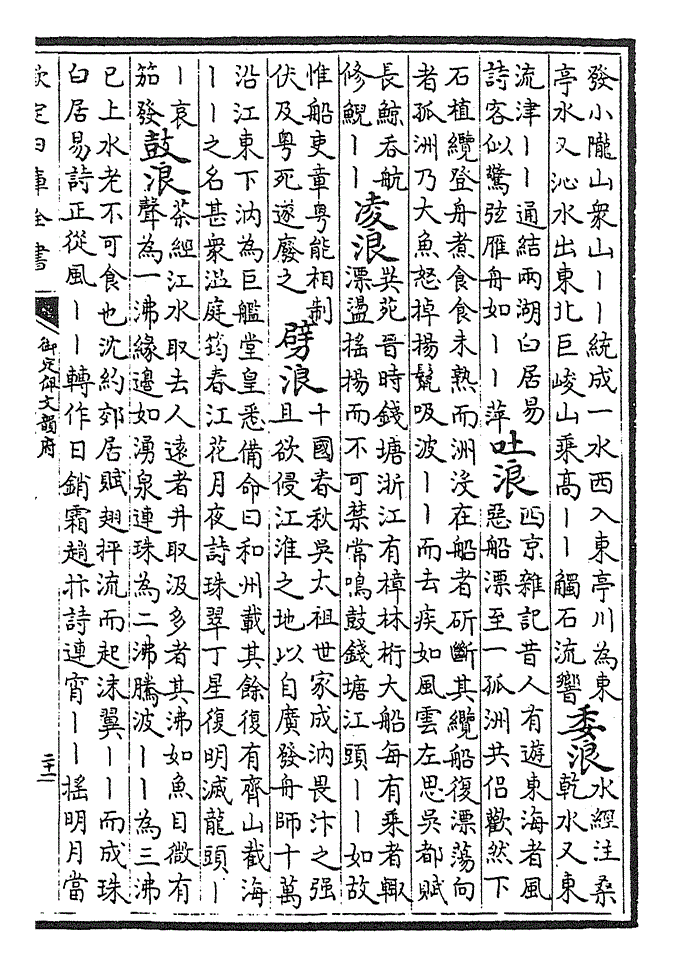 發小隴山衆山丨丨統成一水西入東亭川為東
亭水又沁水出東北巨峻山乘高丨丨觸石流響
委浪
水經注桑
乾水又東
流津丨丨通結兩湖白居易
詩客似驚弦雁舟如丨丨萍
吐浪
西京雜記昔人有遊東海者風
惡船漂至一孤洲共侶歡然下
石植纜登舟煮食食未熟而洲沒在船者斫斷其纜船復漂蕩向
者孤洲乃大魚怒掉揚鬛吸波丨丨而去疾如風雲左思吳都賦
長鯨吞航
修鯢丨丨
凌浪
吳苑晉時錢塘浙江有樟林桁大船每有乘者輒
漂盪搖揚而不可禁常鳴鼓錢塘江頭丨丨如故
惟船吏章粤能相制
伏及粤死遂廢之
劈浪
十國春秋吳太祖世家成汭畏汴之强
且欲侵江淮之地以自廣發舟師十萬
沿江東下汭為巨艦堂皇悉備命曰和州載其餘復有齊山截海
丨丨之名甚衆温庭筠春江花月夜詩珠翠丁星復明滅龍頭丨
丨哀
笳發
鼓浪
茶經江水取去人遠者井取汲多者其沸如魚目微有
聲為一沸緣邊如湧泉連珠為二沸騰波丨丨為三沸
已上水老不可食也沈約郊居賦翅抨流而起沫翼丨丨而成珠
白居易詩正從風丨丨轉作日銷霜趙抃詩連宵丨丨搖明月當
欽定四庫全書
御定佩文韻府
二十二